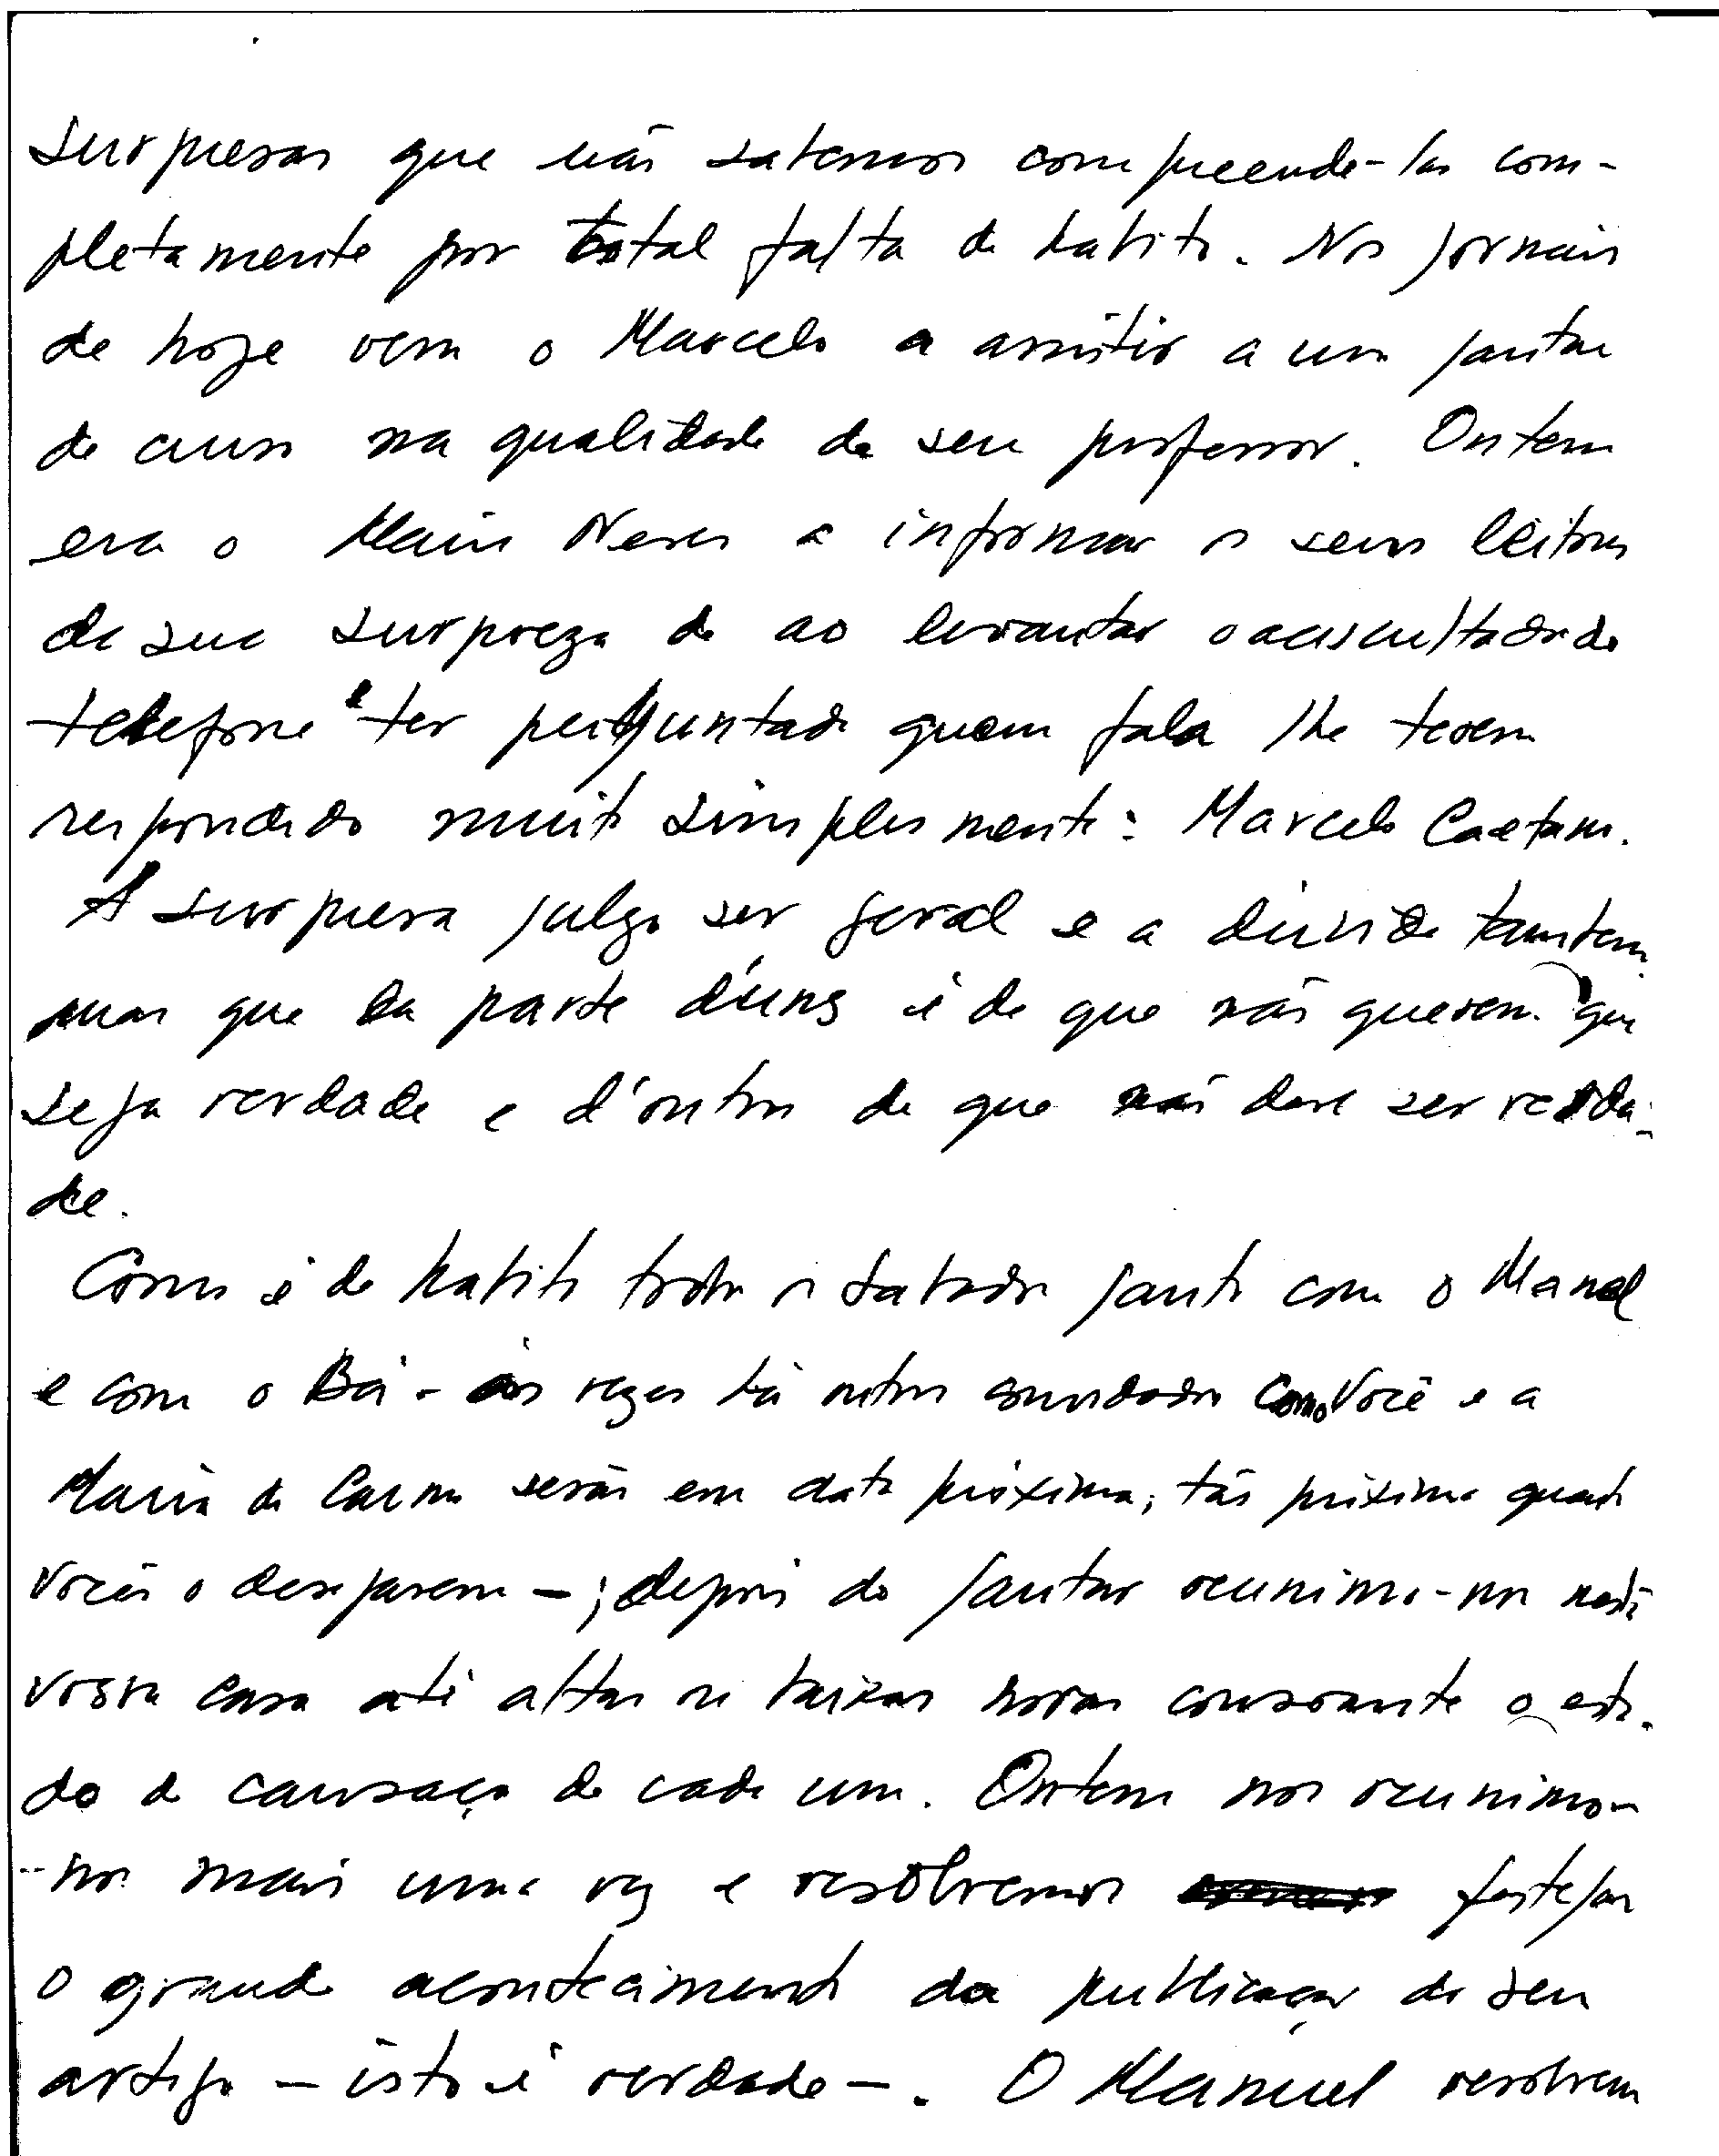 surpresas que não sabemos compreende-las com-
pletamente por total falta de habito. Nos jornais
de hoje vem o Marcelo a assistir a um jantar
de curso na qualidade de seu professor. Ontem
era o Neves a informar os seus leitores
da sua surpreza de ao levantar o auscultador do
telefone e ter perguntado quem fala lhe terem
respondido muito simplesmente: Marcelo Caetano.
A surpresa julgo ser geral e a duvida tambem
mas que da parte d'uns é de que não querem que
seja verdade e d'outros de que não deve ser verda-
de.
Como é de habito todos os sabados janto com o Manel
e com o Bá - ás vezes há outros convidados como Você e a
Maria do Carmo serão em data próxima, tão próxima quanto
Vocês o desejarem -; depois do jantar reunimo-nos nesta
vossa casa até altas ou baixas horas consoante o esta-
do de cansaço de cada um. Ontem nos reunimo-
-nos mais uma vez e resolvemos festejar
o grande acontecimento da publicação do seu
artigo - isto é verdade -. O Manuel resolveu